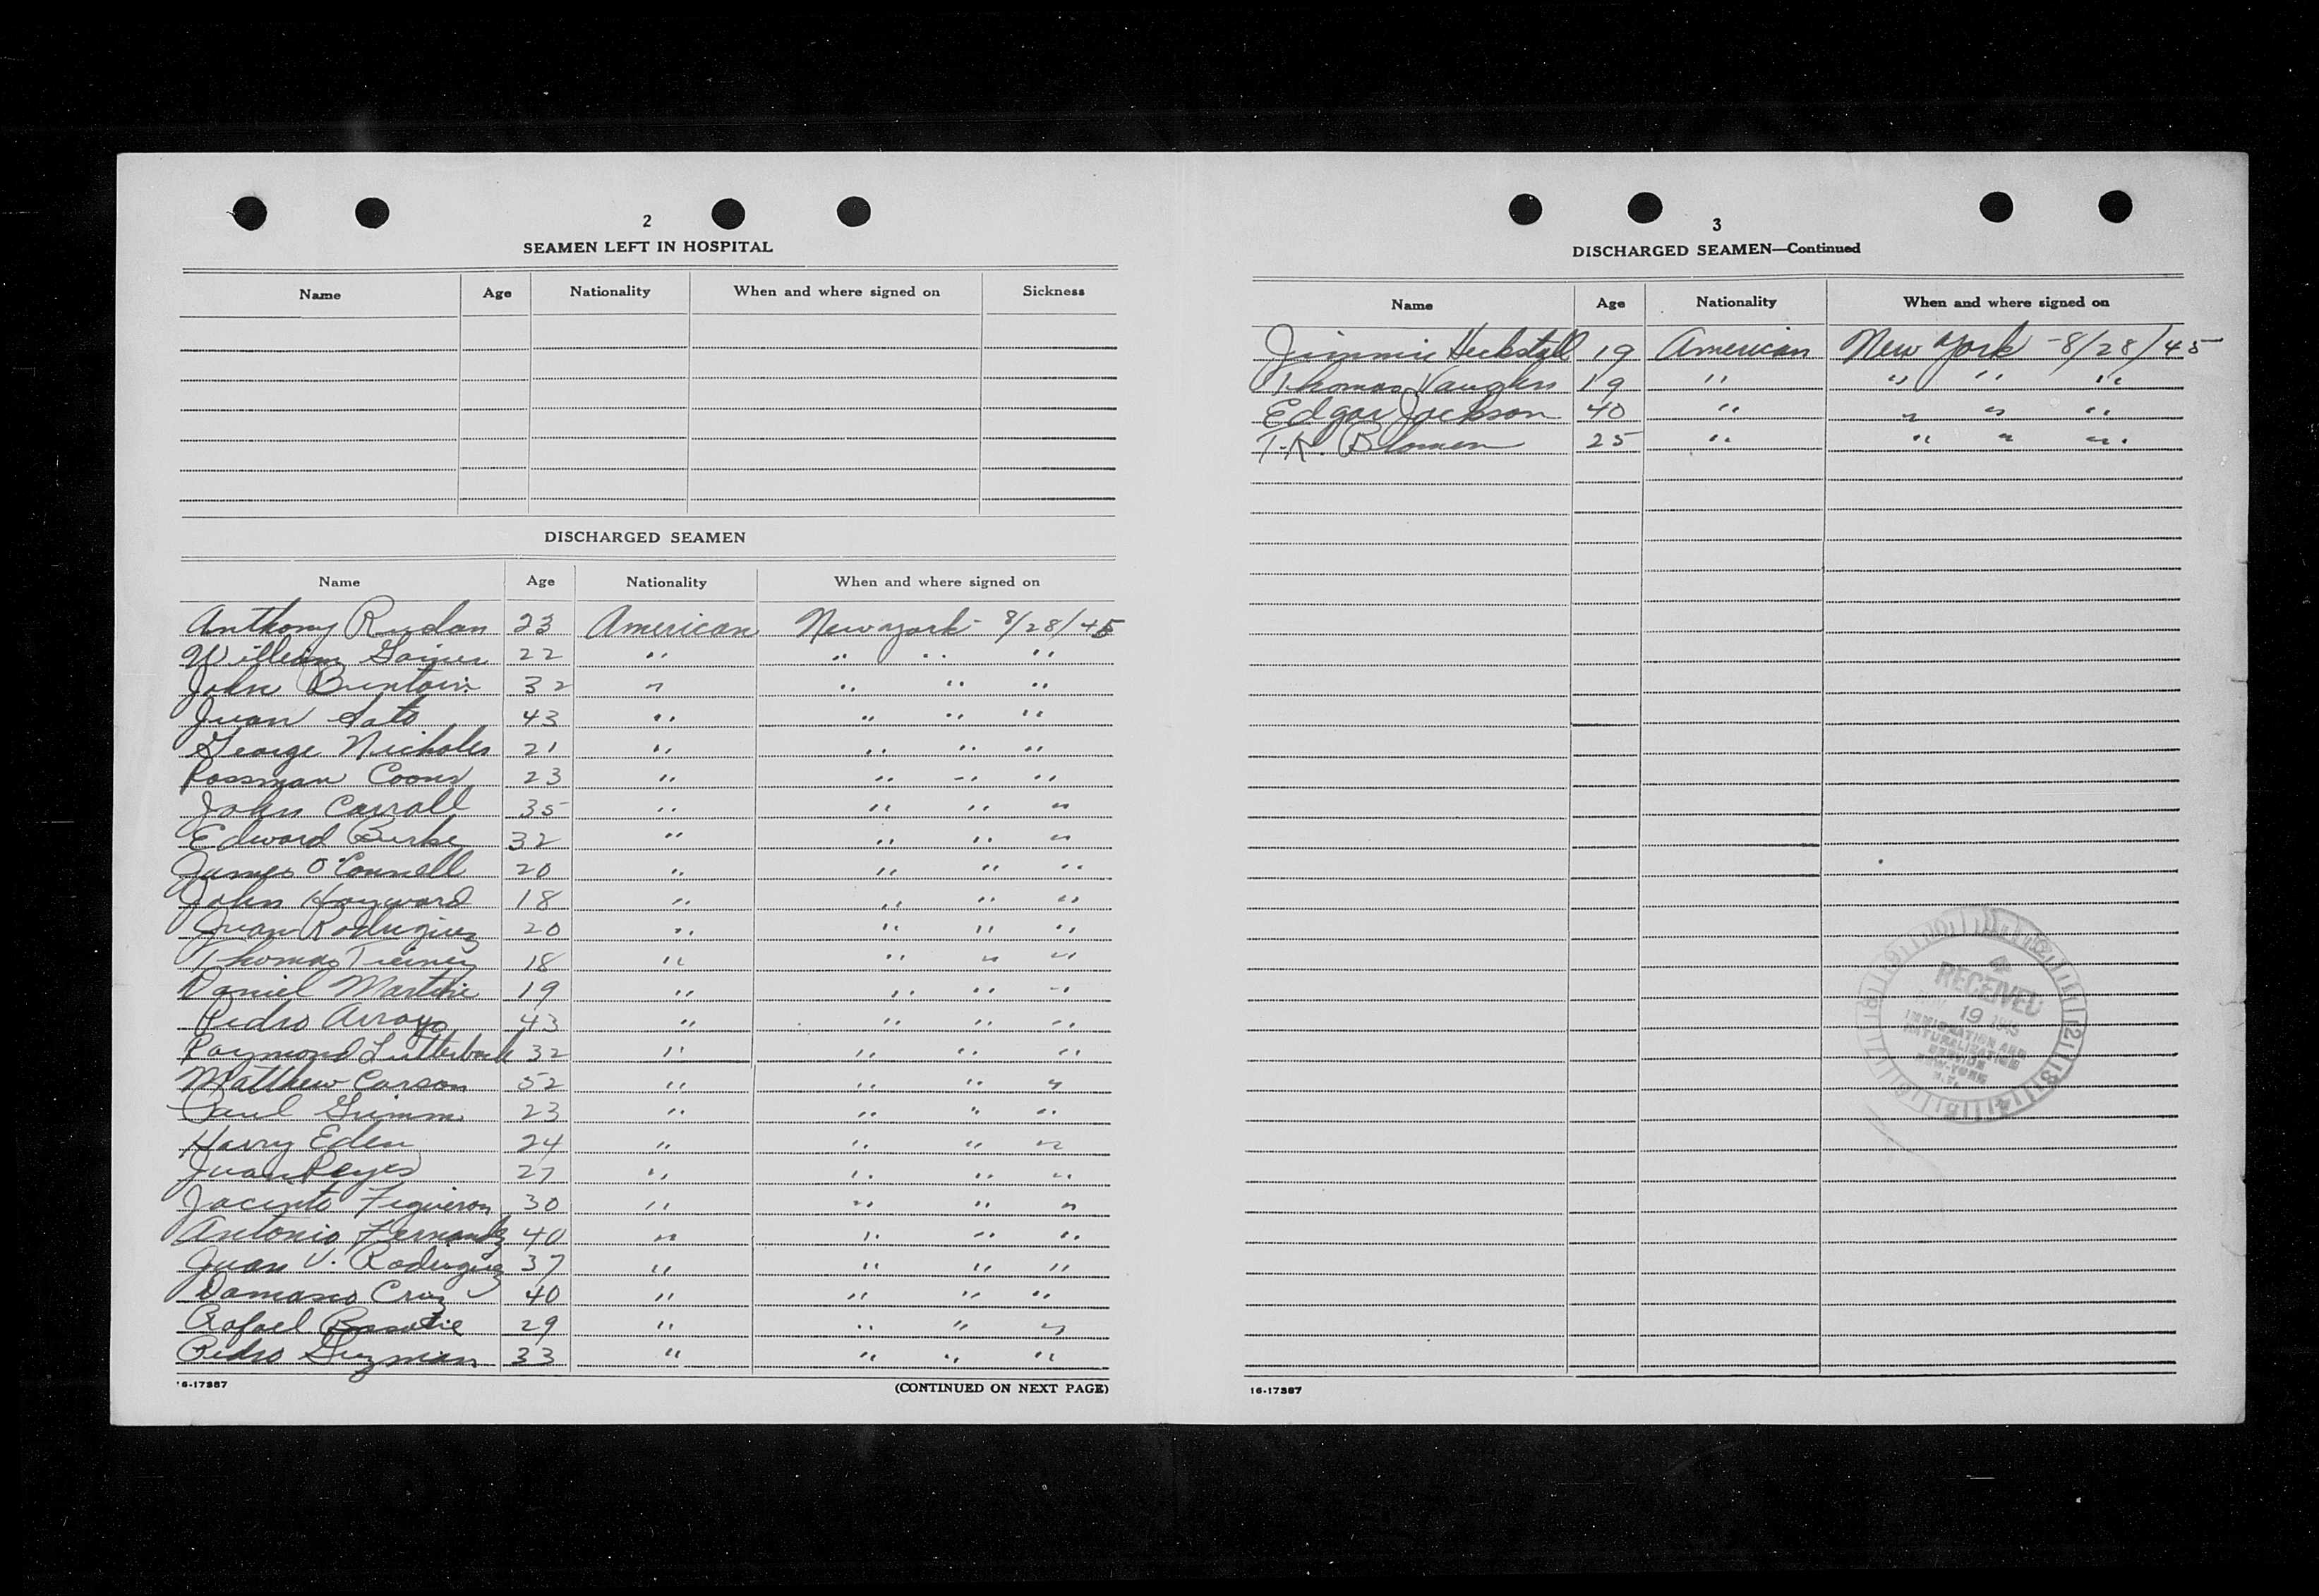 2
SEAMEN LEFT IN HOSPITAL
Name Age Nationality When and where signed on Sickness
DISCHARGED SEAMEN
Name Age Nationality When and where signed on
Anthony Rudan 23 American New York - 8/28/45
William 22 " " " "
John 32 " " " "
Juan Soto 43 " " " "
George Nicholes 21 " " " "
Rossman Coons 23 " " " "
John Carroll 35 " " " "
Edward Burke 32 " " " "
James O'Connell 20 " " " "
John Hayward 18 " " " "
Juan Rodriguez 20 " " " "
Thomas 18 " " " "
Daniel 19 " " " "
Pedro Arroyo 43 " " " "
Raymond Lutterback 32 " " " "
Matthew Carson 52 " " " "
Paul Grimm 23 " " " "
Harry Eden 24 " " " "
Juan Reyes 27 " " " "
Jacinto Figueroa 30 " " " "
Antonio Fernandz 40 " " " "
Juan V. Rodriguez 37 " " " "
Damaso Cruz 40 " " " "
Rafael 29 " " " "
Pedro Guzman 33 " " " "
16-17387 (CONTINUED ON NEXT PAGE)
3
DISCHARGED SEAMEN—Continued
Name Age Nationality When and where signed on
Jimmie Heckstall 19 American New York - 8/28/45
Thomas Vaughn 19 " " " "
Edgar Jackson 40 " " " "
T.K. 25 " " " "
RECEIVED
19 1945
IMMIGRATION AND
NATURALIZATION
SERVICE
NEW-YORK
N.Y.
16-17387